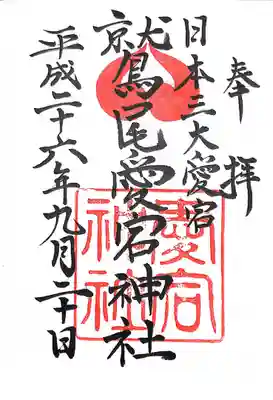 奉拝
日本三大愛宕
鷲尾愛宕神社
平成二十六年九月二十日
愛宕
神社